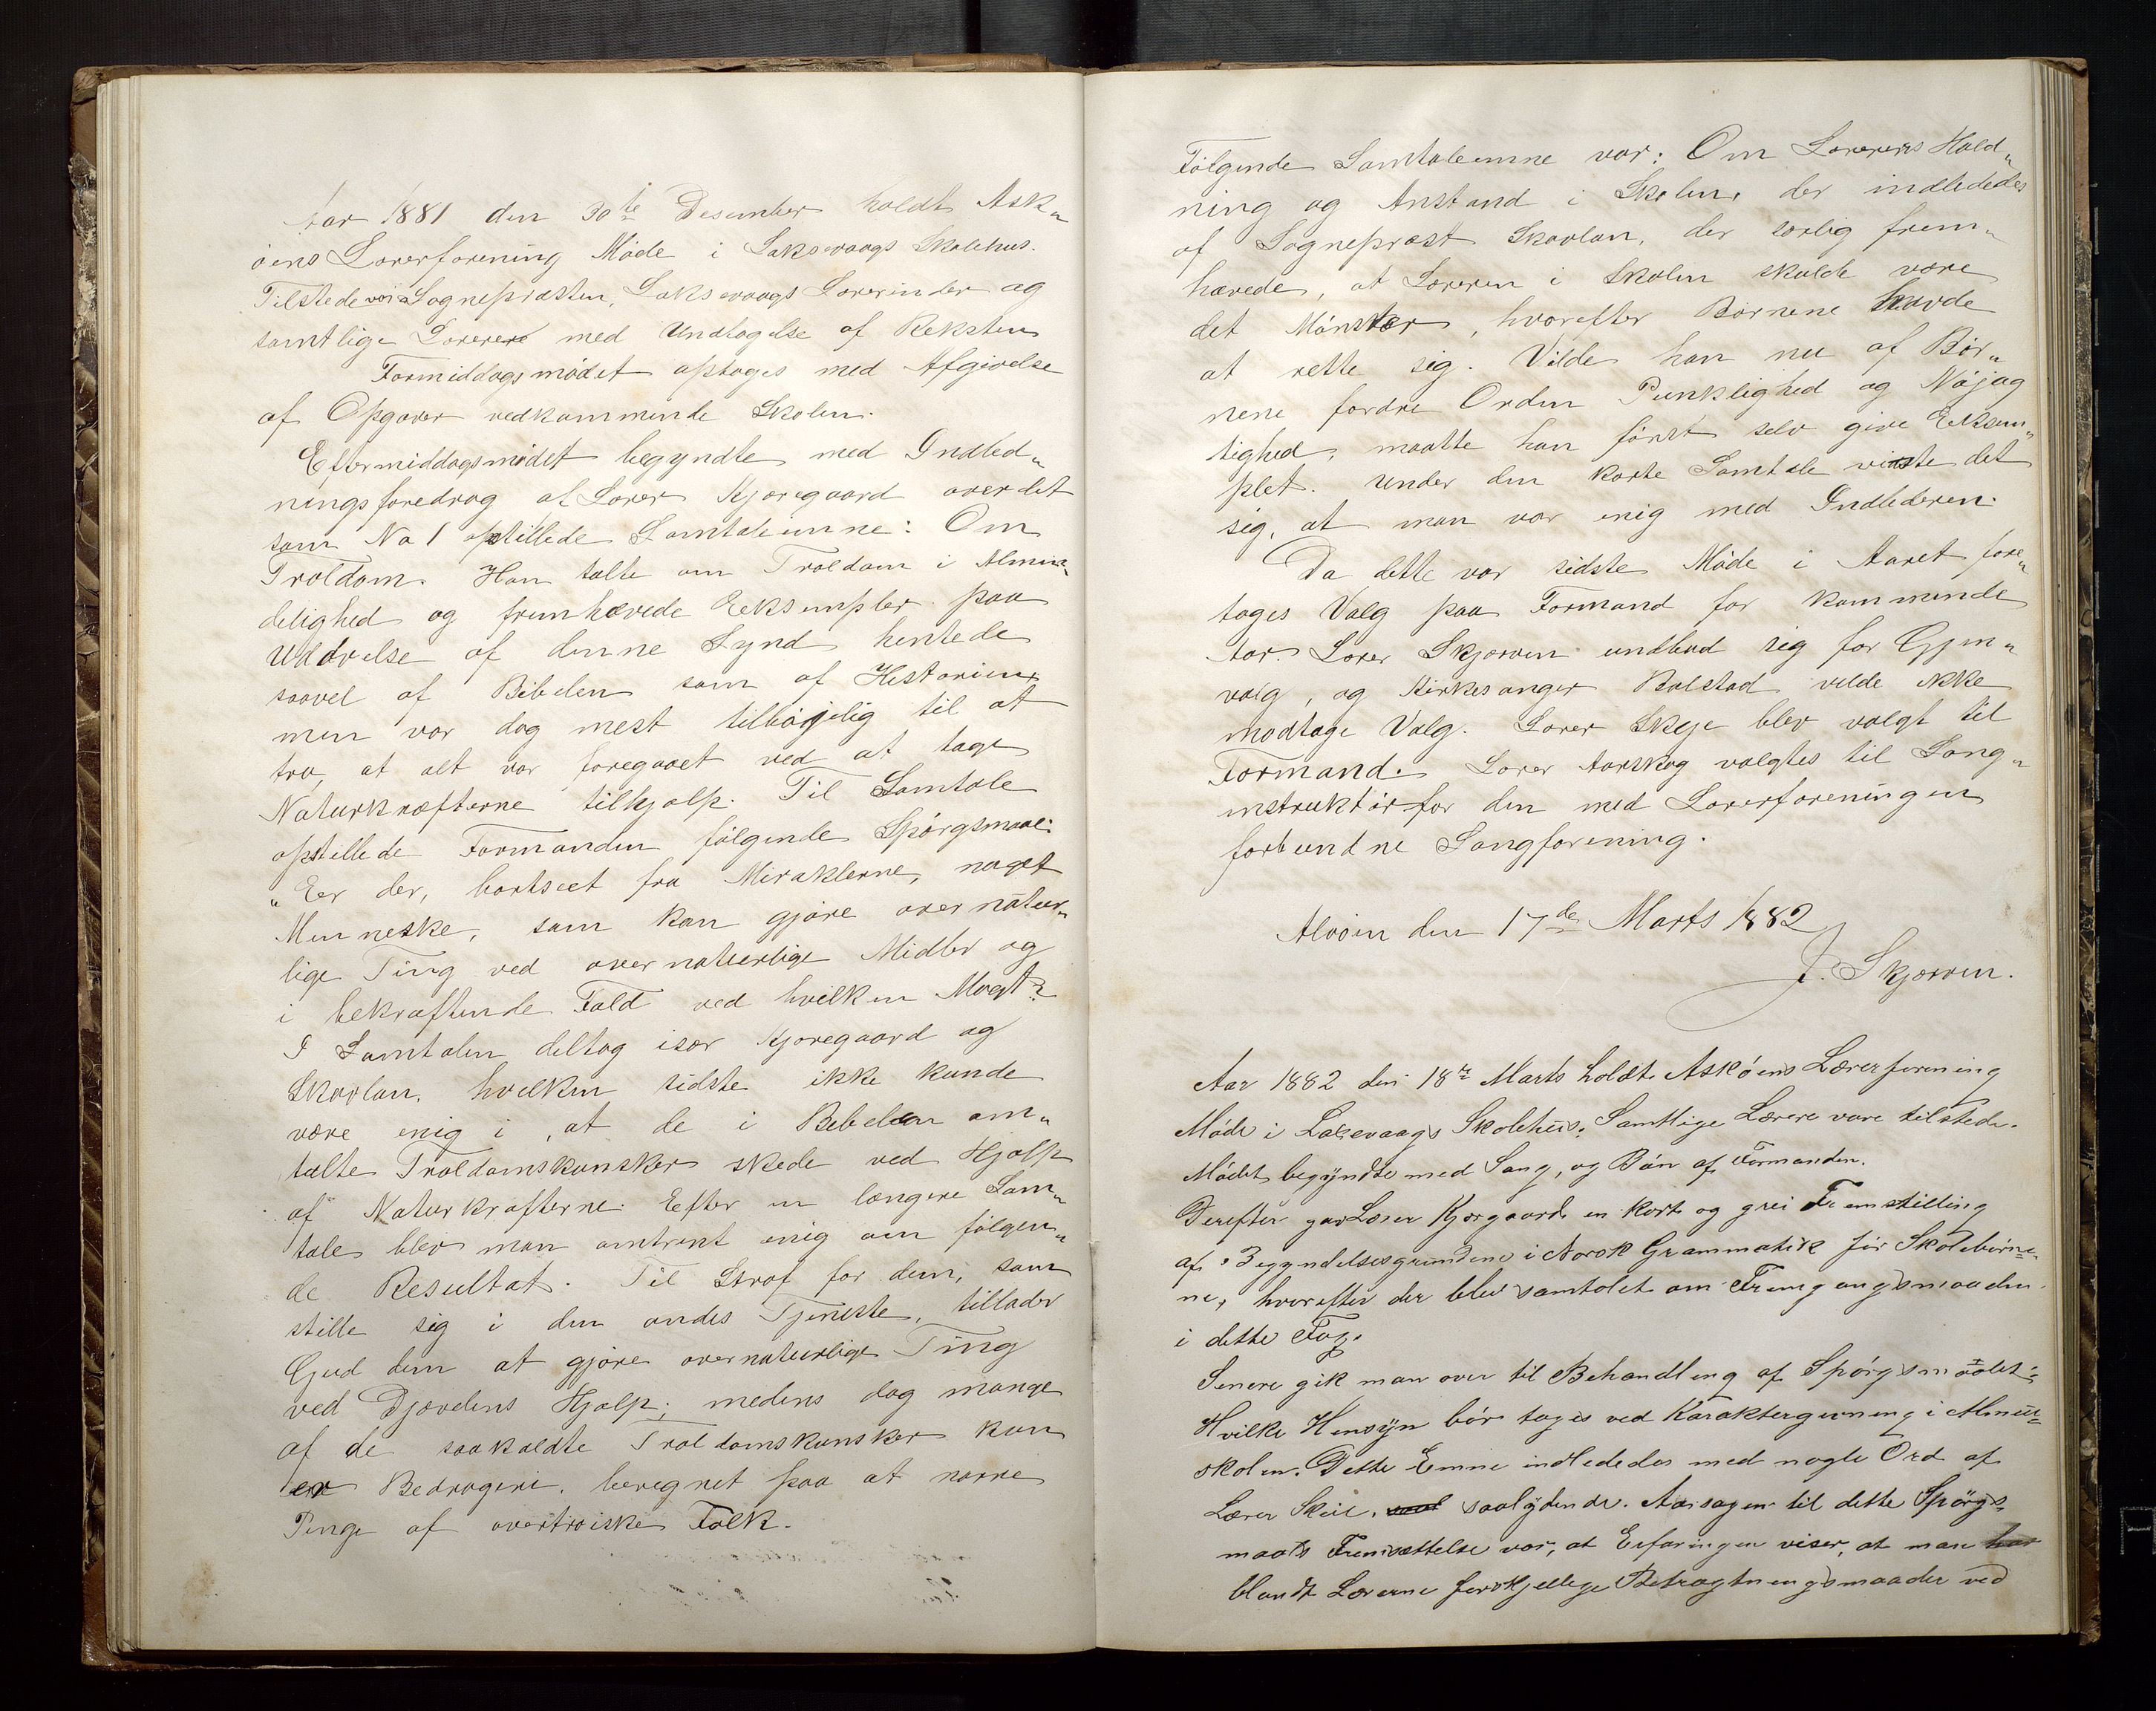 Aar 1881 den 30te Desember holdt Ask„
öens Lærerforening Møde i Laksevaags Skolehus.
Tilstede var Sognepræsten, Laksevaags Lærerinder og
samtlige Lærere med Undtagelse af Reksten
Formiddagsmødet optoges med Afgivelse
af Opgaver vedkommende Skolen.
Eftermiddagsmødet begyndte med Indled„
ningsforedrag af Lærer Kjæregaard over det
som No 1 opstillede Samtaleemne: Om
Troldom. Han talte om Troldom i Almin„
delighed og fremhævede Eeksempler paa
Udøvelse af denne Synd hentede
saavel af Bibelen som af Historien,
men var dog mest tilbøjelig til at
tro, at alt var foregaaet ved at tage
Naturkræfterne tilhjælp. Til Samtale
opstillede Formanden følgende Spørgsmaal:
„Eer der, bortseet fra Miraklerne, noget
Menneske, som kan gjøre overnatur„
lige Ting ved overnaturlige Midler og
i bekræftende Fald ved hvilken Magt?
I Samtalen deltog især Kjæregaard og
Skavlan, hvilken sidste ikke kunde
være enig i, at de i Bibelen om„
talte Troldomskunster skede ved Hjælp
af Naturkræfterne. Efter en længere Sam„
tale blev man omtrent enig om følgen„
de Resultat. Til Straf for dem, som
stille sig i den ondes Tjeneste, tillader
Gud dem at gjøre overnaturlige Ting
ved Djævelens Hjælp; medens dog mange
af de saakaldte Troldomskunster kun
er Bedrageri, beregnet paa at narre
Penge af overtroiske Folk.
Følgende Samtaleemne var: Om Lærerens Hold„
ning og Anstand i Skolen, der indlededes
af Sogneprest Skavlan, der særlig frem„
hævede, at Læreren i Skolen skulde være
det Mønster, hvorefter Børnene havde
at rette sig. Vilde han nu af Bør„
nene fordre Orden Punklighed og Nøjag
tighed, maatte han først selv give Eeksem„
plet. Under den korte Samtale viste det
sig, at man var enig med Indlederen.
Da dette var sidste Møde i Aaret fore„
toges Valg paa Formand for kommende
Aar. Lærer Skjørven undbad sig for Gjen„
valg, og Kirkesanger Bolstad vilde ikke
modtage Valg. Lærer Skeje blev valgt til
Formand. Lærer Aarskog valgtes til Sang„
instruktör for den med Lærerforeningen
forbundne Sangforening.
Alvöen den 17de Marts 1882
J. Skjørven.
Aar 1882 den 18de Marts holdt Askøens Lærerforening
Møde i Laksevaags Skolehus. Samtlige Lærere vare tilstede.
Mødet begyndte med Sang, og Bøn af Formanden.
Derefter gav Lærer Kjærgaard en kort og grei Fremstilling
af Begyndelsesgrundene i Norsk Grammatik for Skolebørne„
ne, hvorefter der blev samtalet om Fremgangsmaaden
i dette Fag.
Senere gik man over til Behandling af Spørgsmaalet:
Hvilke Hensyn bør tages ved Karaktergivning i Almue
skolen. Dette Emne indlededes med nogle Ord af
Lærer Skeie, saalydende. Aarsagen til dette Spørgs
maals Fremsættelse var, at Erfaringen viser, at man har
blandt Lærerne forskjellige Betragtningsmaader ved